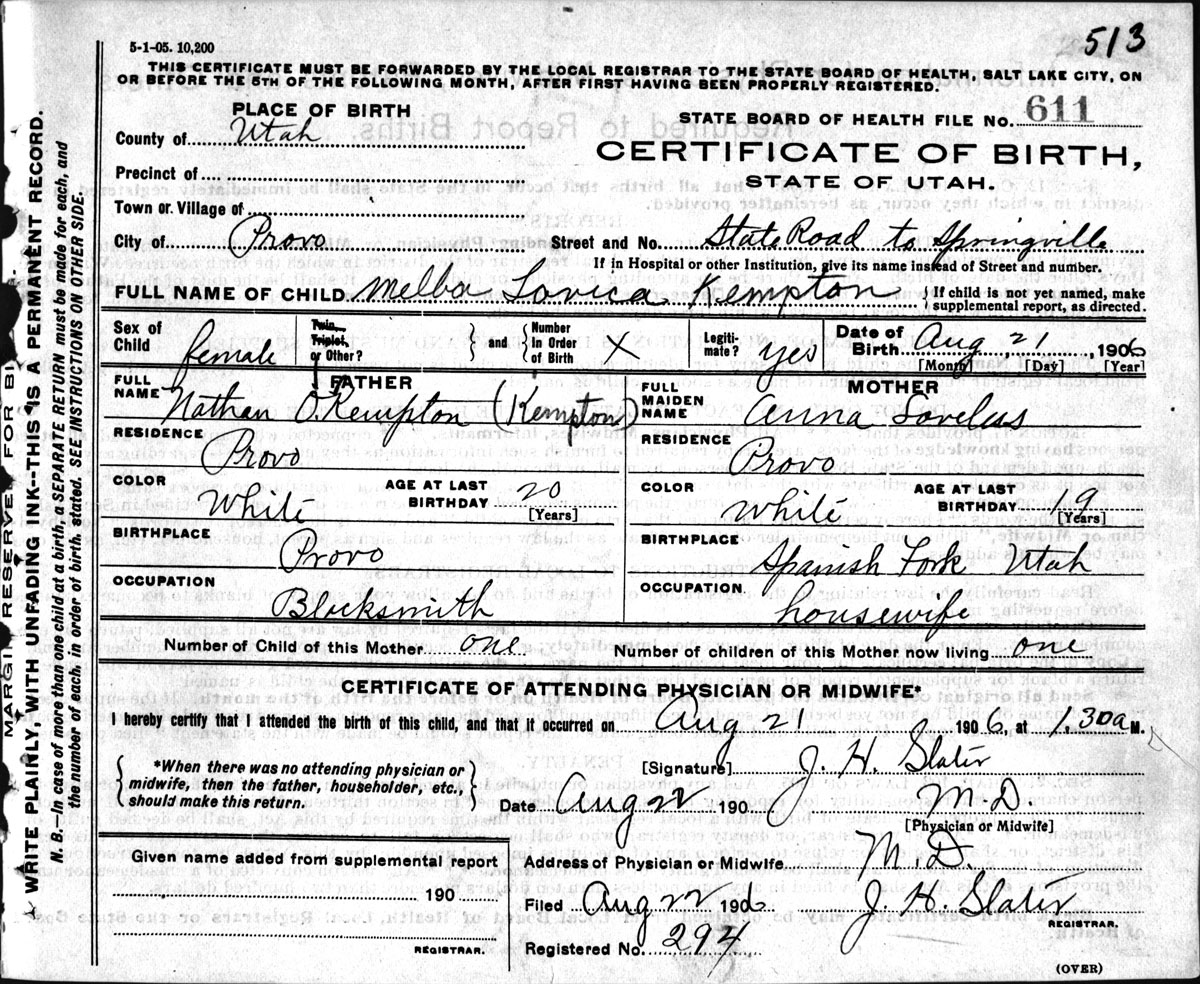 513
5-1-05. 10,200
THIS CERTIFICATE MUST BE FORWARDED BY THE LOCAL REGISTRAR TO THE STATE BOARD OF HEALTH, SALT LAKE CITY, ON
OR BEFORE THE 5TH OF THE FOLLOWING MONTH, AFTER FIRST HAVING BEEN PROPERLY REGISTERED.
PLACE OF BIRTH
STATE BOARD OF HEALTH FILE NO. 611
County of Utah
CERTIFICATE OF BIRTH,
Precinct of
STATE OF UTAH.
Town or Village of
City of Provo Street and No. State Road to Springville
If in Hospital or other Institution, give its name instead of Street and number.
FULL NAME OF CHILD Melba Lovica Kempton { If child is not yet named, make
supplemental report, as directed.
Sex of Child female
Twin, Triplet, or Other? } and { Number in Order of Birth X
Legitimate? yes
Date of Birth Aug 21, 1906
[Month] [Day] [Year]
FATHER
FULL NAME Nathan O. Kempton (Kempton)
RESIDENCE Provo
COLOR White AGE AT LAST BIRTHDAY 20
[Years]
BIRTHPLACE Provo
OCCUPATION Blacksmith
MOTHER
FULL MAIDEN NAME Anna Loveless
RESIDENCE Provo
COLOR White AGE AT LAST BIRTHDAY 19
[Years]
BIRTHPLACE Spanish Fork Utah
OCCUPATION housewife
Number of Child of this Mother one. Number of children of this Mother now living one
CERTIFICATE OF ATTENDING PHYSICIAN OR MIDWIFE*
I hereby certify that I attended the birth of this child, and that it occurred on Aug 21 1906, at 1.30 a M.
*When there was no attending physician or
midwife, then the father, householder, etc.,
should make this return.
[Signature] J. H. Slater
Date Aug 22 1906 M.D.
[Physician or Midwife]
Given name added from supplemental report
190
REGISTRAR.
Address of Physician or Midwife M.D.
Filed Aug 22 1906 J. H. Slater
REGISTRAR.
Registered No. 294
(OVER)
MARGIN RESERVE FOR BI
WRITE PLAINLY, WITH UNFADING INK--THIS IS A PERMANENT RECORD.
N. B.--In case of more than one child at a birth, a SEPARATE RETURN must be made for each, and
the number of each, in order of birth, stated. SEE INSTRUCTIONS ON OTHER SIDE.